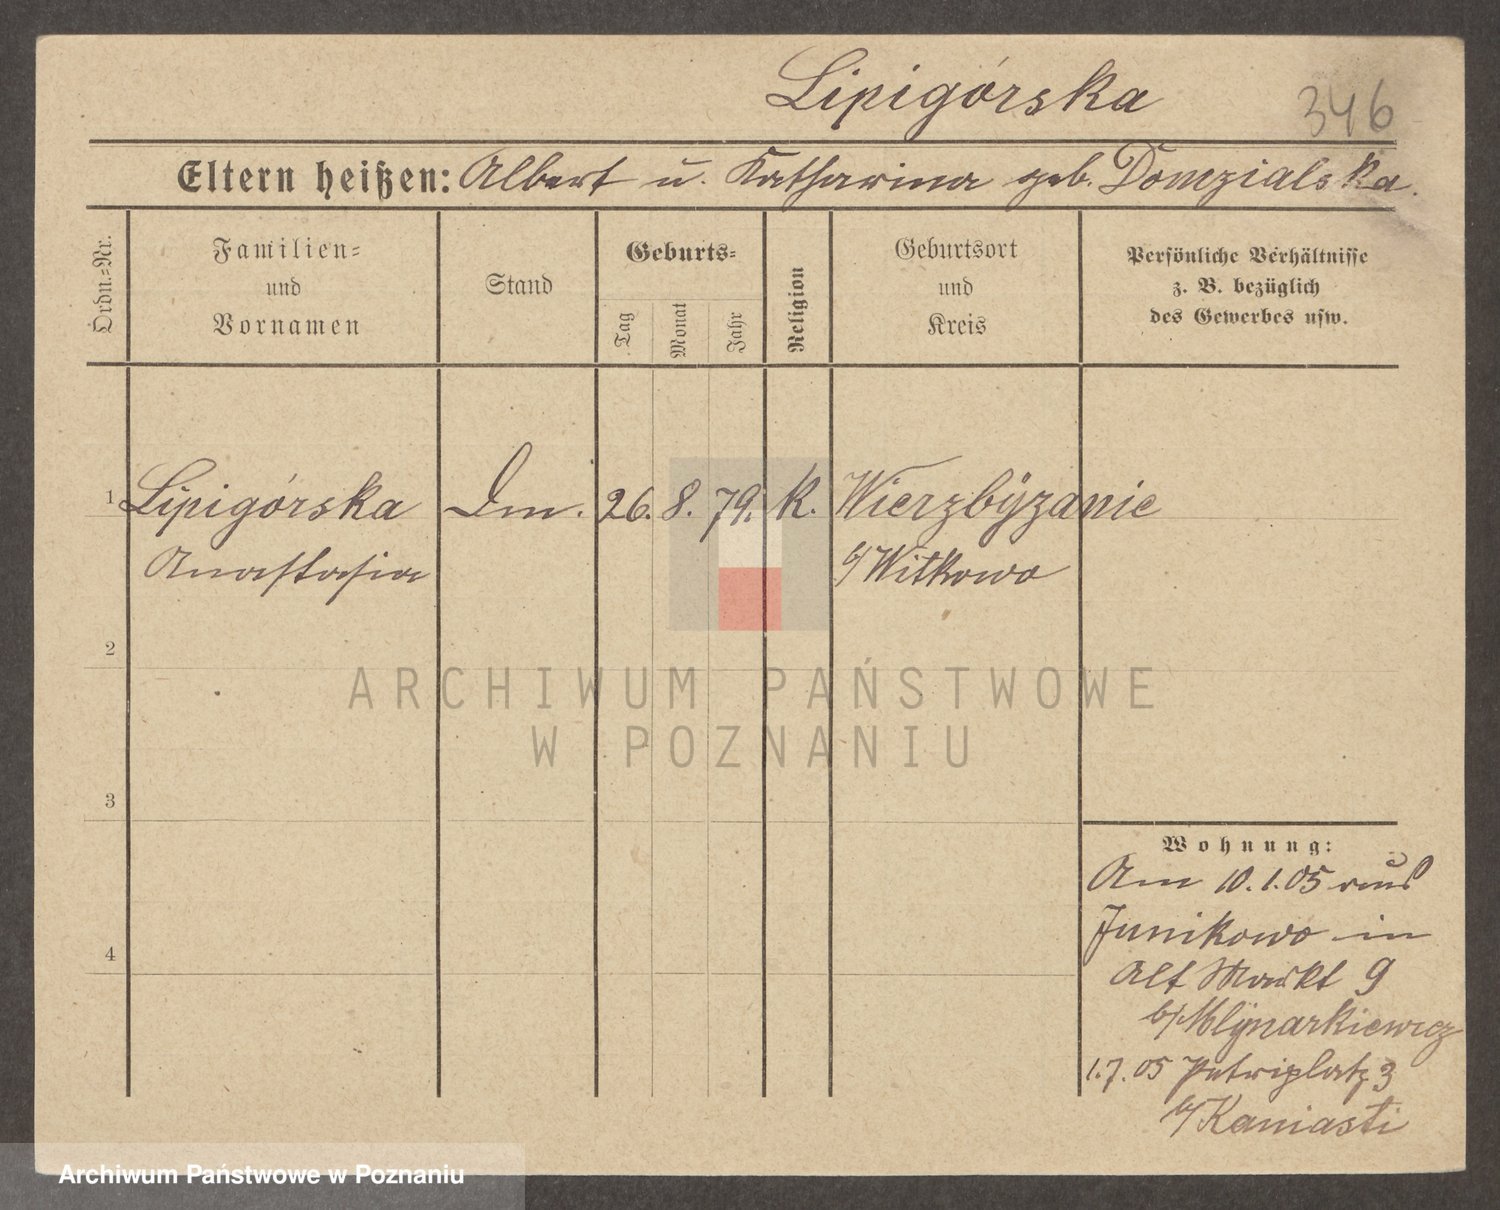 Lipigórska
346
Eltern heißen: Albert u. Katharina geb. Domzialska.
Ordn.-Nr.
Familien-
und
Vornamen
Stand
Geburts-
Tag
Monat
Jahr
Religion
Geburtsort
und
Kreis
Persönliche Verhältnisse
z. B. bezüglich
des Gewerbes usw.
1 Lipigórska Dm. 26. 8. 79. K. Wierzbÿzanie
Anastasia b/Witkowo
2
ARCHIWUM PAŃSTWOWE
W POZNANIU
3
Wohnung:
Am 10.1.05 aus
Junikowo in
4
Alt Markt 9
b/Mlÿnarkiewicz
1.7.05 Petriplatz 3
b/Kaniasti
Archiwum Państwowe w Poznaniu